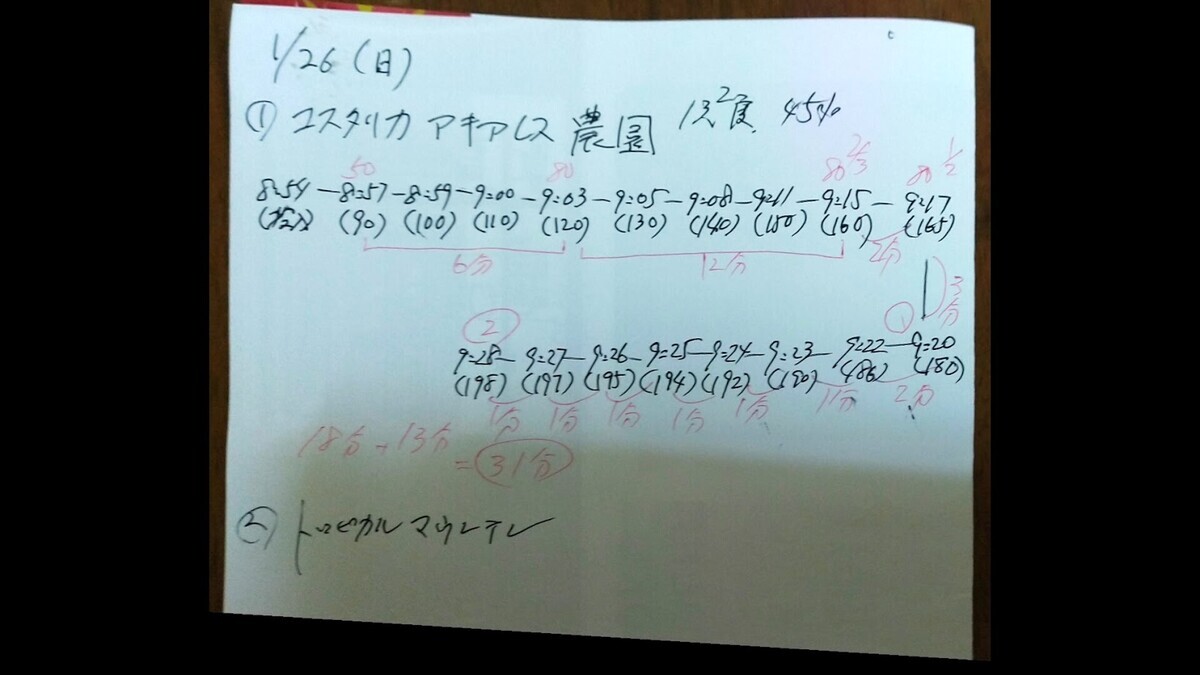 1/26(日)
① コスタリカ アキアレス 農園 13℃ 2度 45%
50 80 80 2/3 80 1/2
8:54 - 8:57 - 8:59 - 9:00 - 9:03 - 9:05 - 9:08 - 9:11 - 9:15 - 9:17
(投入) (90) (100) (110) (120) (130) (140) (150) (160) (165)
6分 12分 2分
3分
② ①
9:28 - 9:27 - 9:26 - 9:25 - 9:24 - 9:23 - 9:22 - 9:20
(198) (197) (195) (194) (192) (190) (186) (180)
1分 1分 1分 1分 1分 1分 2分
18分 + 13分
= 31分
② トロピカルマウンテン